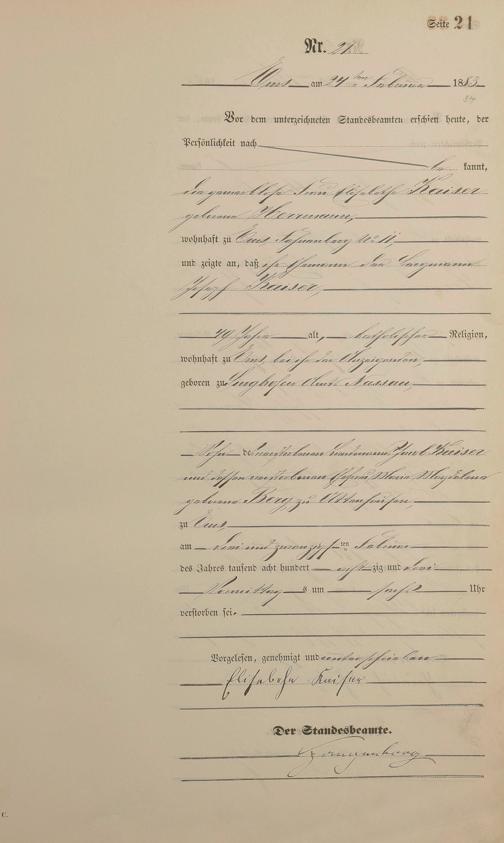 Seite 21
Nr. 21
Ems am 24ten Februar 1883
Vor dem unterzeichneten Standesbeamten erschien heute, der
Persönlichkeit nach
be kannt,
die gewerblose Frau Elisabethe Kaiser
geborene Herrmann,
wohnhaft zu Ems, No 11,
und zeigte an, daß ihr Ehemann der Bergmann
Joseph Kaiser,
49 Jahre alt, katholischer Religion,
wohnhaft zu Ems, bei ihr der Anzeigenden,
geboren zu Singhofen Amt Nassau,
Sohn des verstorbenen Jacob Kaiser
und dessen verstorbenen Ehefrau Maria Magdalena
geborene Berg zu Attenhausen,
zu Ems,
am drei und zwanzigsten Februar
des Jahres tausend acht hundert achtzig und drei
Vormittags um sechs Uhr
verstorben sei.
Vorgelesen, genehmigt und unterschrieben
Elisabethe Kaiser
Der Standesbeamte.
C.